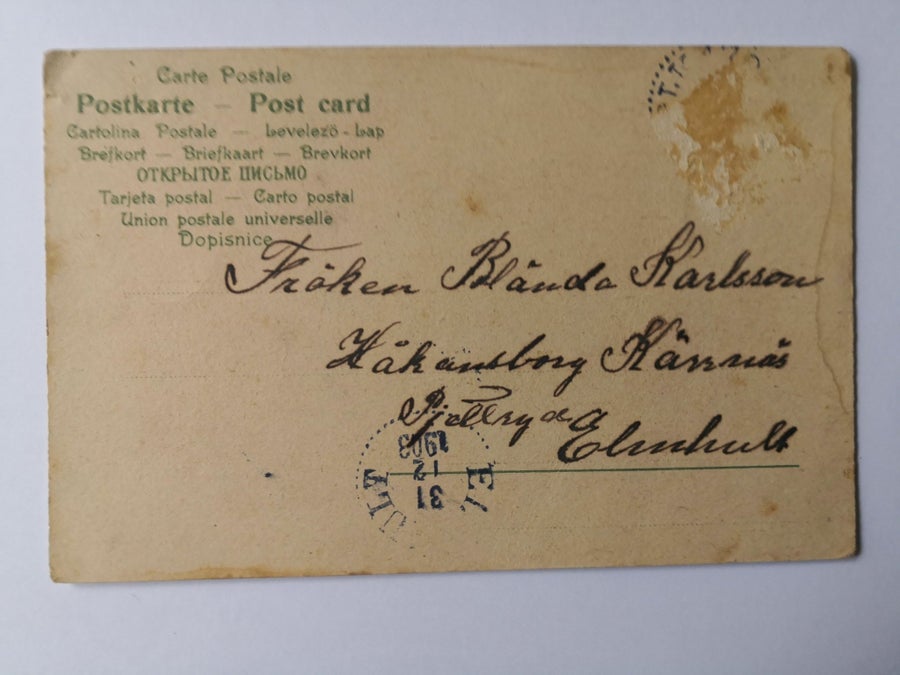 Carte Postale
Postkarte — Post card
Cartolina Postale — Levelező-Lap
Brefkort — Briefkaart — Brevkort
ОТКРЫТОЕ ПИСЬМО
Tarjeta postal — Carto postal
Union postale universelle
Dopisnice
Fröken Blända Karlsson
Håkansborg Kärrnäs
Pjätteryd
Elmhult
1903
12
31